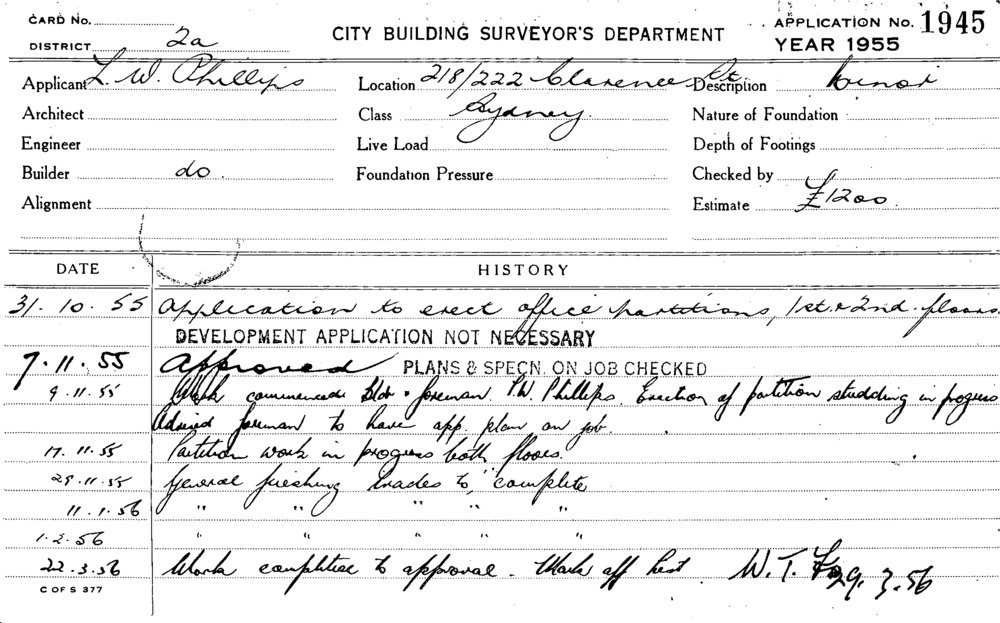 CARD No.
DISTRICT 2a
CITY BUILDING SURVEYOR'S DEPARTMENT
APPLICATION No. 1945
YEAR 1955
Applicant L. W. Phillips Location 218/222 Clarence St Description Minor
Architect Class Sydney Nature of Foundation
Engineer Live Load Depth of Footings
Builder do. Foundation Pressure Checked by
Alignment Estimate £1200
DATE HISTORY
31. 10. 55 Application to erect office partitions, 1st & 2nd floors.
DEVELOPMENT APPLICATION NOT NECESSARY
7. 11. 55 Approved PLANS & SPECN. ON JOB CHECKED
9. 11. 55 Work commenced bldr foreman Phillips. Erection of partition studding in progress
Advised foreman to have app. plan on job.
17. 11. 55 Partition work in progress both floors.
29. 11. 55 General finishing trades to complete
11. 1. 56 " " " " "
1. 2. 56 " " " " "
22. 3. 56 Work complete to approval. Mark off W. T. 29. 3. 56
C OF S 377